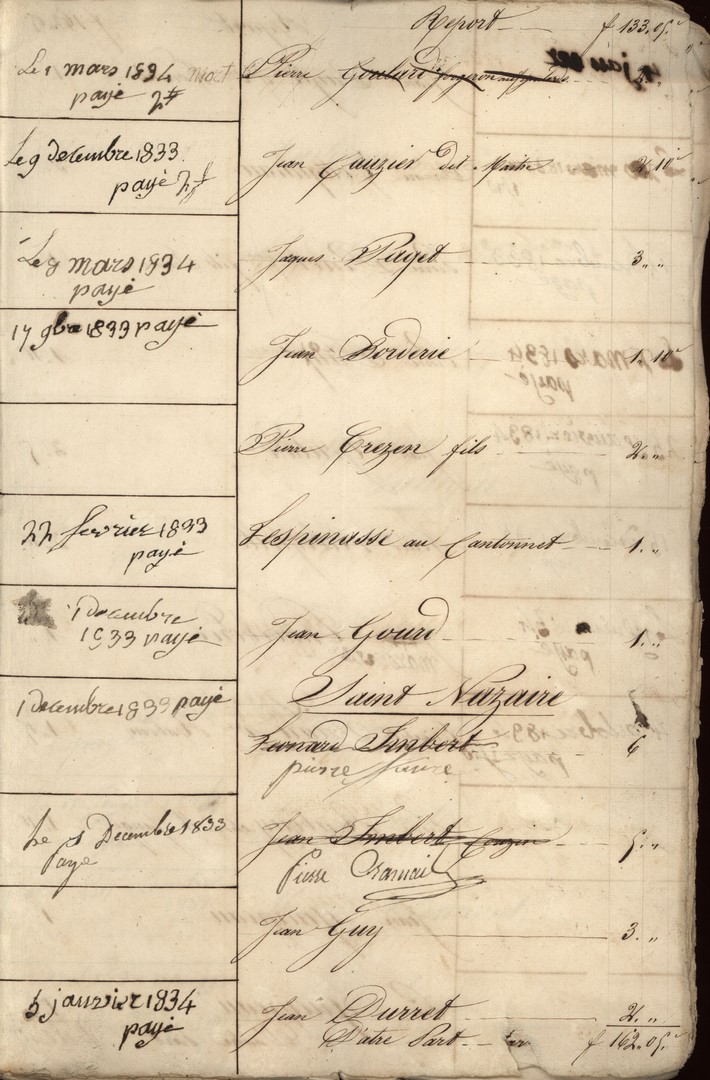 Report f 133.05.
Le 1 mars 1834
payé 2f
Pierre Goulard
Le 9 decembre 1833
payé 2f
Jean Cauzier dit Maitre 2. 10
Le 9 mars 1934
payé
Jaques Paget 3. "
17 9bre 1833 payé
Jean Borderie 1. 10
Pierre Crezen fils 2. "
22 fevrier 1833
payé
Lespinasse au Cantonnet 1. "
1 Decembre
1933 payé
Jean Gourd 1. "
Saint Nazaire
1 decembre 1833 payé
Leonard Imbert 6
pierre
Le 1 Decembre 1833
Paye
Jean Imbert Couzin 5. "
Pierre
Jean Guy 3. "
5 janvier 1834
payé
Jean Durret 2. "
D'atre Part f 162.05.